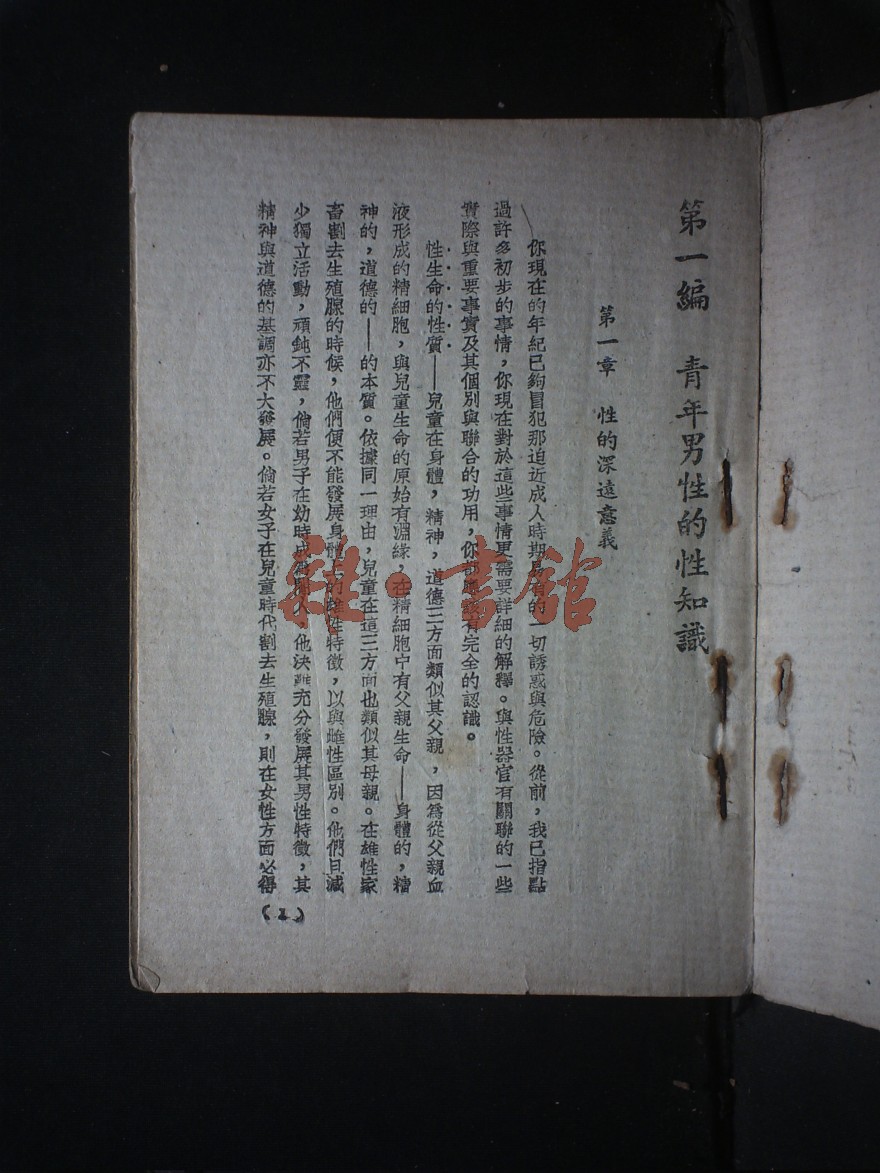 第一編　青年男性的性知識
第一章　性的深遠意義
你現在的年紀已夠冒犯那迫近成人時期易有的一切誘惑與危險。從前，我已指點
過許多初步的事情，你現在對於這些事情更需要詳細的解釋。與性器官有關聯的一些
實際與重要事實及其個別與聯合的功用，你都應該有完全的認識。
性生命的性質——兒童在身體，精神，道德三方面類似其父親，因爲從父親血
液形成的精細胞，與兒童生命的原始有淵緣，在精細胞中有父親生命——身體的，精
神的，道德的——的本質。依據同一理由，兒童在這三方面也類似其母親。在雄性家
畜割去生殖腺的時候，他們便不能發展身體上的雄性特徵，以與雌性區別。他們且減
少獨立活動，頑鈍不靈，倘若男子在幼時成爲閹人，他決難充分發展其男性特徵，其
精神與道德的基調亦不大發展。倘若女子在兒童時代割去生殖腺，則在女性方面必得
(1)
雜·書館